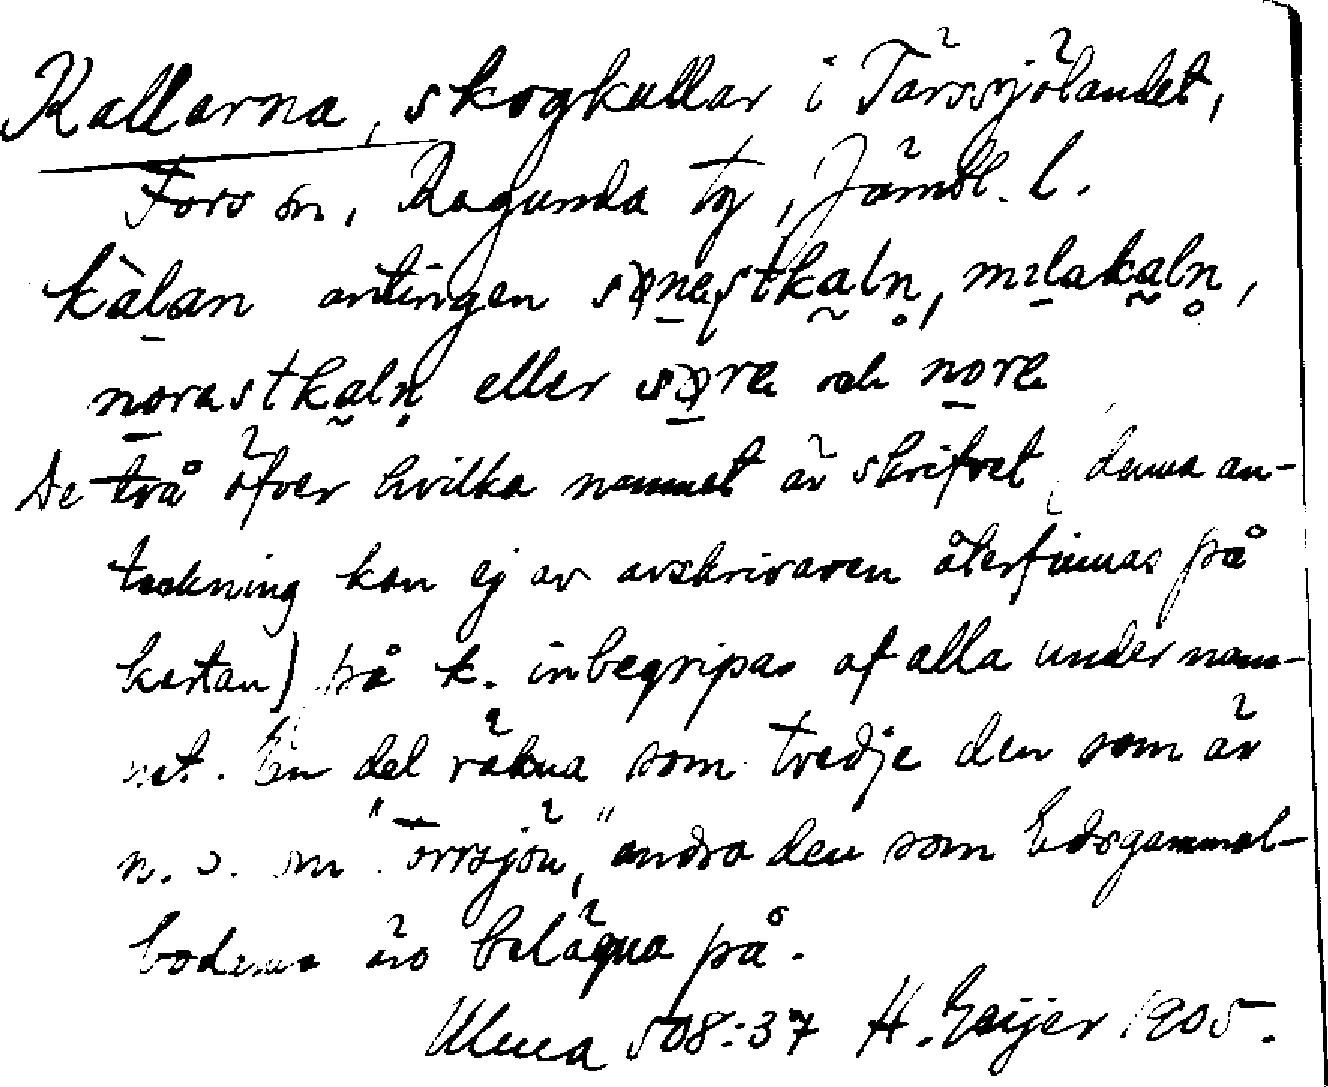 Kallarna, skogkullar i Tärssjölandet,
Fors sn, Ragunda tg, Jämtl. l.
kàlan antingen sønestkaln̥, mɩlakaln̥,
norastkaln̥ eller søre och nore
De två öfver hvilka namnet är skrifvet, denna an-
teckning kan ej av avskrivaren återfinnas på
kartan) på k. inbegripas af alla under nam-
net. En del räkna som tredje den som är
n. o. om "Torrsjön," andra den som Edsgammel-
bodarna äro belägna på.
Ulma 508:37 H. Geijer 1905.